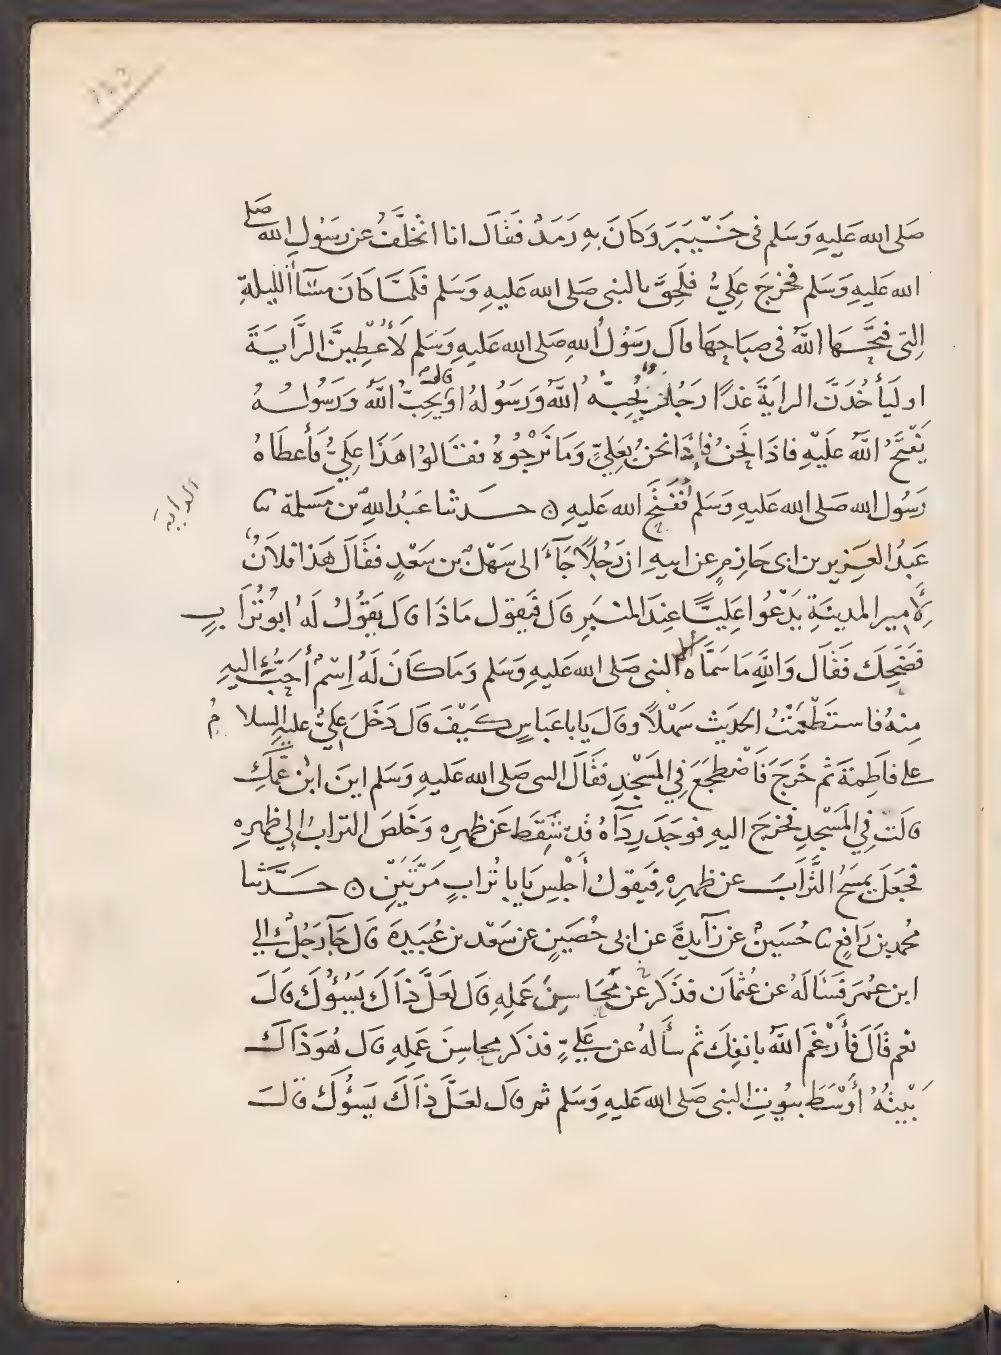 صَلى الله عَليهِ وَسَلم فى خَيْبَرَ وَكانَ بهِ رَمَدٌ فقَالَ انا اتخلَّفُ عن رَسُولِ الله صَلى
الله عَليهِ وَسَلم فخرَجَ عَلِىٌّ فلَحِقَ بالنبى صَلى الله عَليهِ وَسَلم فلَمَّا كانَ مسَاءُ الليلةِ
التى فتحَهَا اللهُ فى صَبَاحِهَا قال رَسُولُ اللهِ صَلى الله عَليهِ وَسَلم لَأُعْطِيَنَّ الرَّايَةَ
او لَيَأخُذَنَّ الرايَةَ غدًا رَجُلٌ يُحِبُّهُ اللهُ وَرَسُولهُ او قال يُحِبُّ اللهَ وَرَسُولهُ
يَفْتَحُ اللهُ عَلَيْهِ فاذَا نَحنُ بعَلِىٍّ وَمَا نَرْجُوهُ فقالوا هَذَا عَلِىٌّ فأعطَاهُ
رَسُول الله صَلى الله عَليهِ وَسَلم ففَتَحَ الله عَليهِ ٥ حَدثنا عَبدُ اللهِ بن مَسلمة نا
الراية
عَبدُ العَزيز بن ابى حَازمٍ عن ابيهِ ان رَجُلًا جَآءَ الى سَهْل بن سَعْدٍ فقَالَ هَذا فلانٌ
لأمير المدينَةِ يَدْعُوا عَليًّا عِندَ المنبَرِ قال فيَقول مَاذَا قال يقُولُ لَهُ ابو تُرَابٍ
فضَحِكَ فقَال وَاللهِ مَا سَمَّاهُ الا النبى صَلى الله عَليهِ وَسَلم وَمَا كانَ لَهُ اِسْمٌ أَحَبُّ اليهِ
مِنهُ فاستَطْعَمْتُ الحديث سَهْلًا وقال يا با عَباسٍ كيفَ قال دَخَلَ عَلِىٌّ عليهِ السلامُ
على فاطِمةَ ثم خَرَجَ فَاضْطجَعَ فِى المَسْجِدِ فقَالَ النبى صَلى الله عَليهِ وَسَلم اينَ ابْن عَمِّكِ
قالت فِى المَسْجدِ فخرَجَ اليهِ فوجَدَ رِدَآهُ قد سَقَط عَن ظهرهِ وَخَلصَ الترابُ إلى ظهرهِ
فجعَلَ يمسَحُ التُّرَابَ عن ظهرِهِ فيَقول أَجْلِسْ يَا با تُرابٍ مَرَّتَيْنِ ٥ حَدَّثنا
محُمد بن رَافعٍ نا حُسَيْنٌ عن زَآيدةَ عن ابى حُصَيْنٍ عن سَعْد بن عُبَيدةَ قال جَآ رَجُلٌ الى
ابن عمَرَ فسَالَهُ عن عُثمَان فذَكَر عَن مَحَاسِنِ عَمَلِهِ قال لعَلَّ ذَاكَ يَسُؤُكَ قالَ
نعم قَالَ فأَرْغمَ اللهُ بانفِكَ ثم سأَلهُ عن عَلِىٍّ فذكر محاسِنَ عَمَلِهِ قال هُوَ ذَاكَ
بَيْتُهُ أَوْسَطَ بيُوتِ النبى صَلى الله عَليهِ وَسَلم ثم قال لعَلَّ ذَاكَ يَسُؤُكَ قالَ